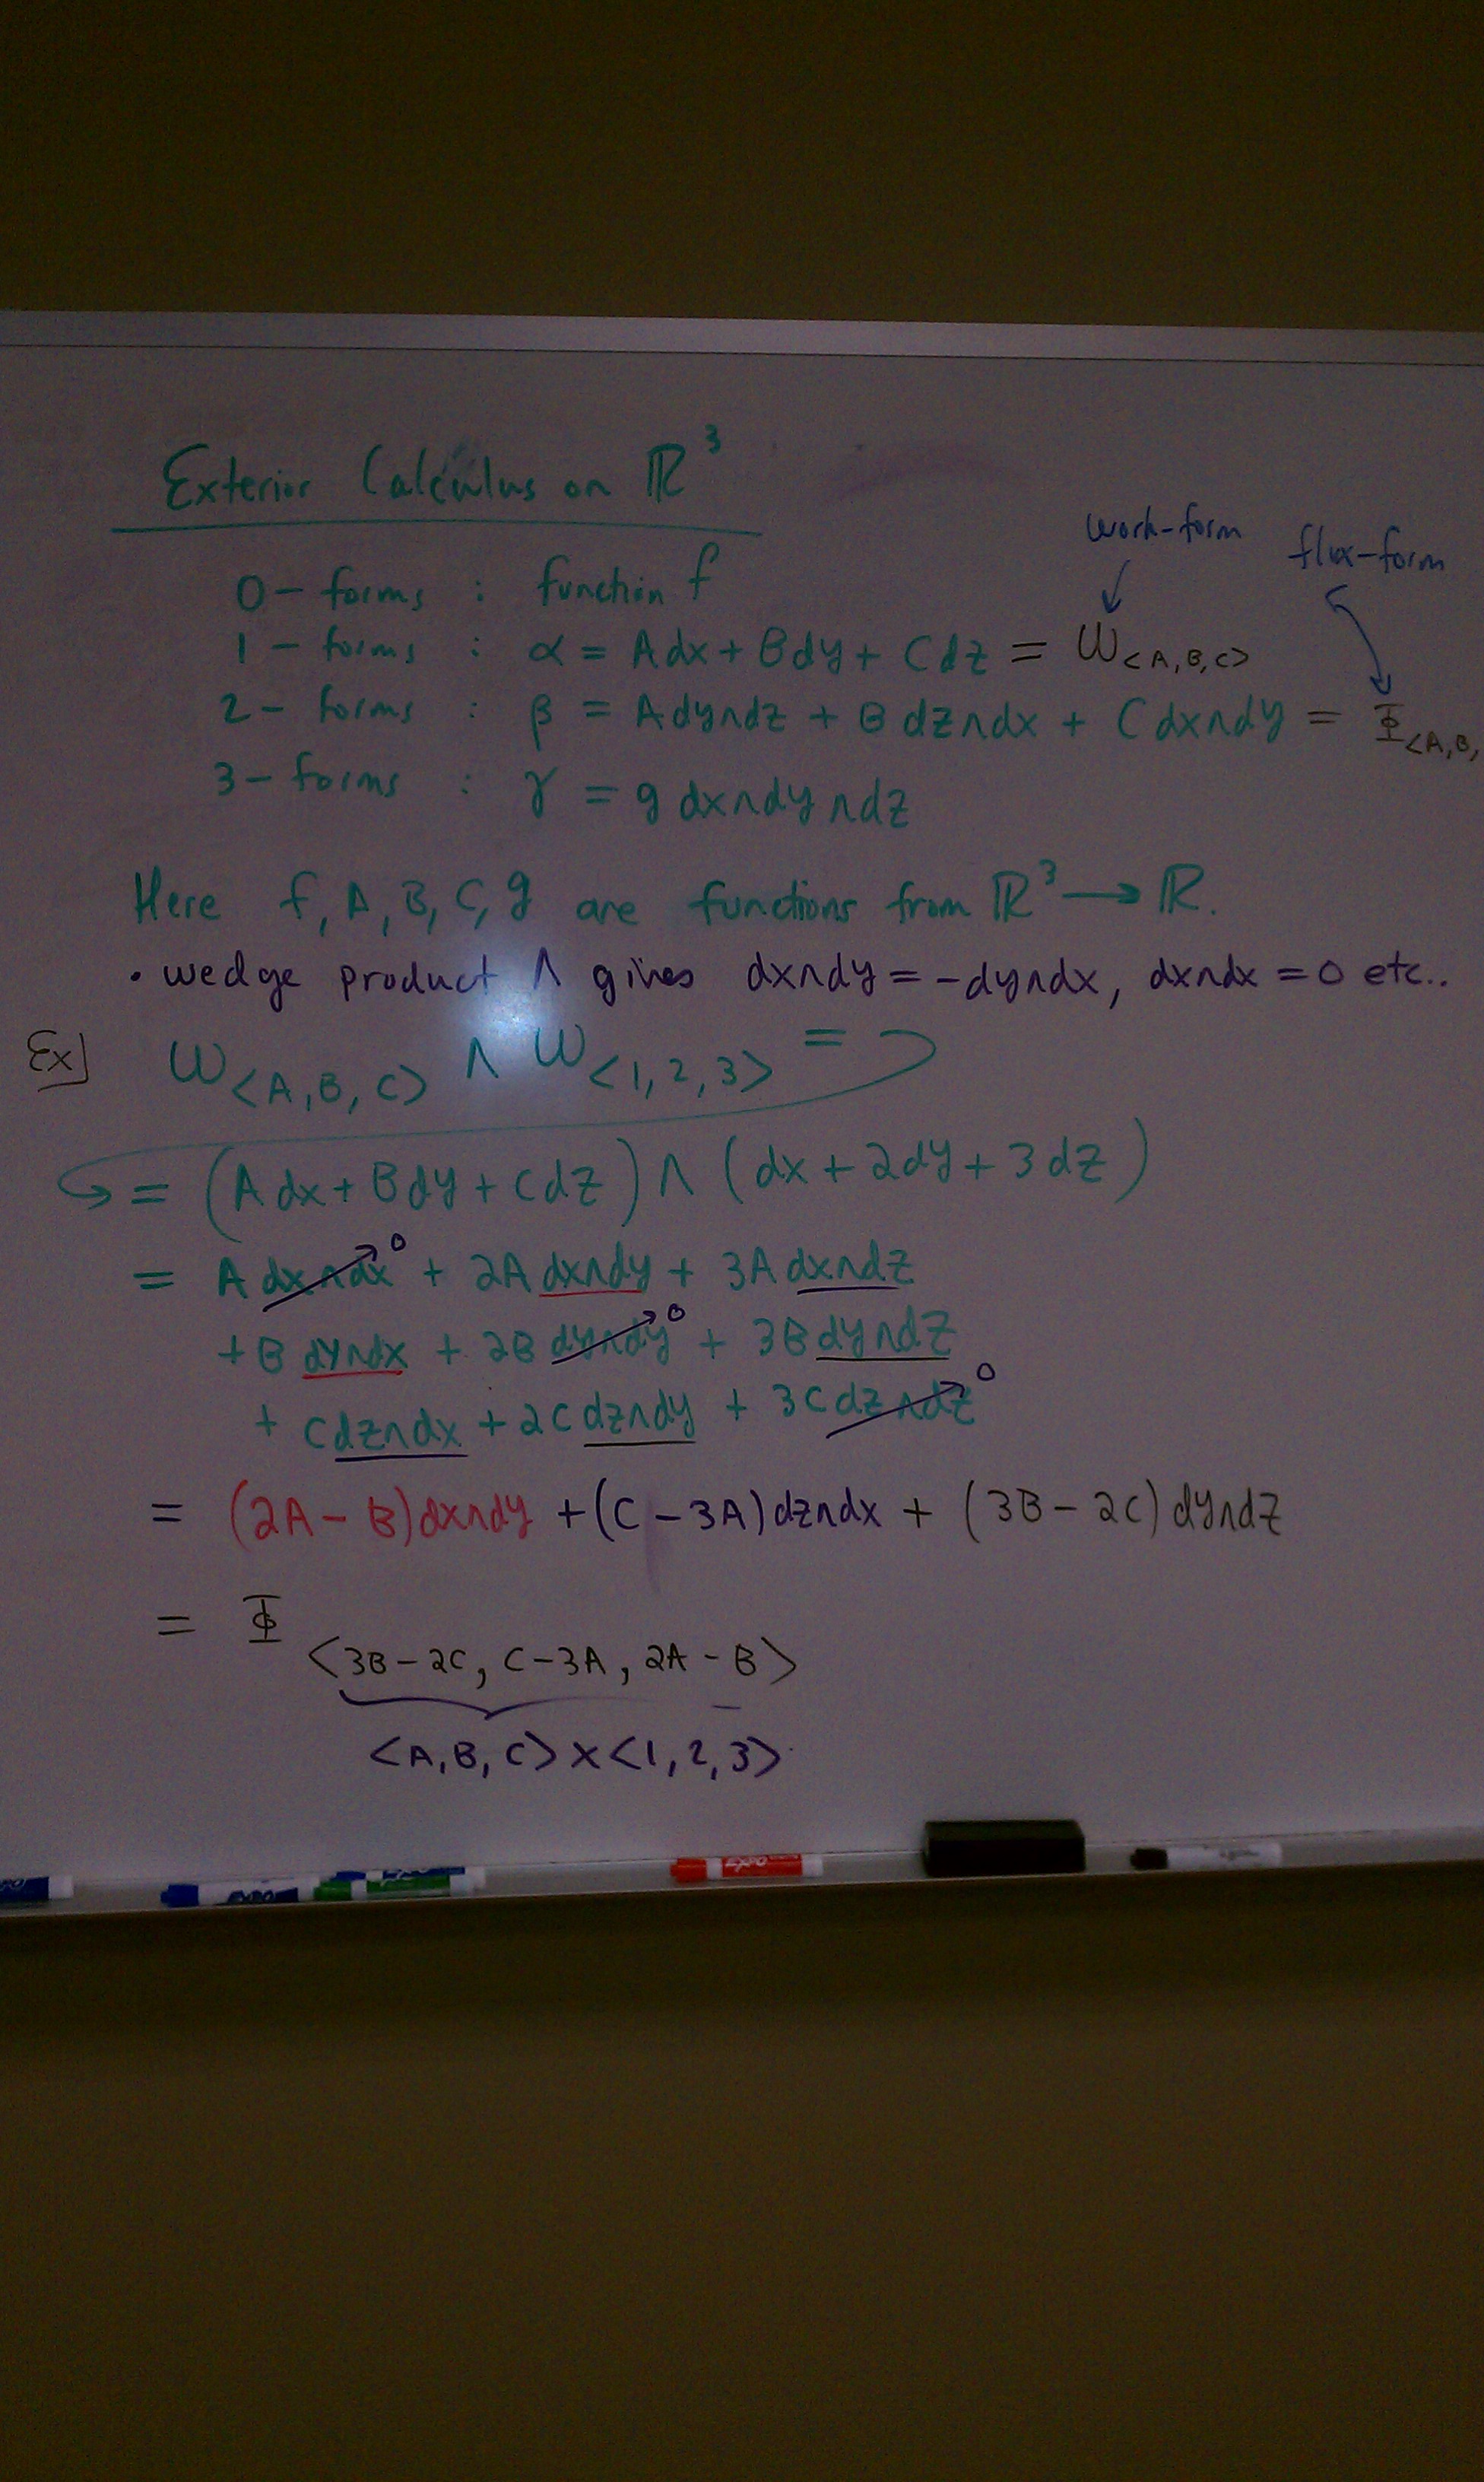 Exterior Calculus on ℝ³
work-form
flux-form
0 - forms : function f
1 - forms : α = A dx + B dy + C dz = ω<A, B, C>
2 - forms : β = A dy∧dz + B dz∧dx + C dx∧dy = Φ<A, B,
3 - forms : γ = g dx∧dy∧dz
Here f, A, B, C, g are functions from ℝ³ → ℝ.
• wedge product ∧ gives dx∧dy = -dy∧dx, dx∧dx = 0 etc..
Ex] ω<A, B, C> ∧ ω<1, 2, 3> =
= (A dx + B dy + C dz) ∧ (dx + 2dy + 3dz)
= A dx∧dx 0 + 2A dx∧dy + 3A dx∧dz
+ B dy∧dx + 2B dy∧dy 0 + 3B dy∧dz
+ C dz∧dx + 2C dz∧dy + 3C dz∧dz 0
= (2A - B) dx∧dy + (C - 3A) dz∧dx + (3B - 2C) dy∧dz
= Φ<3B - 2C, C - 3A, 2A - B>
<A, B, C> × <1, 2, 3>
EXPO
EXPO